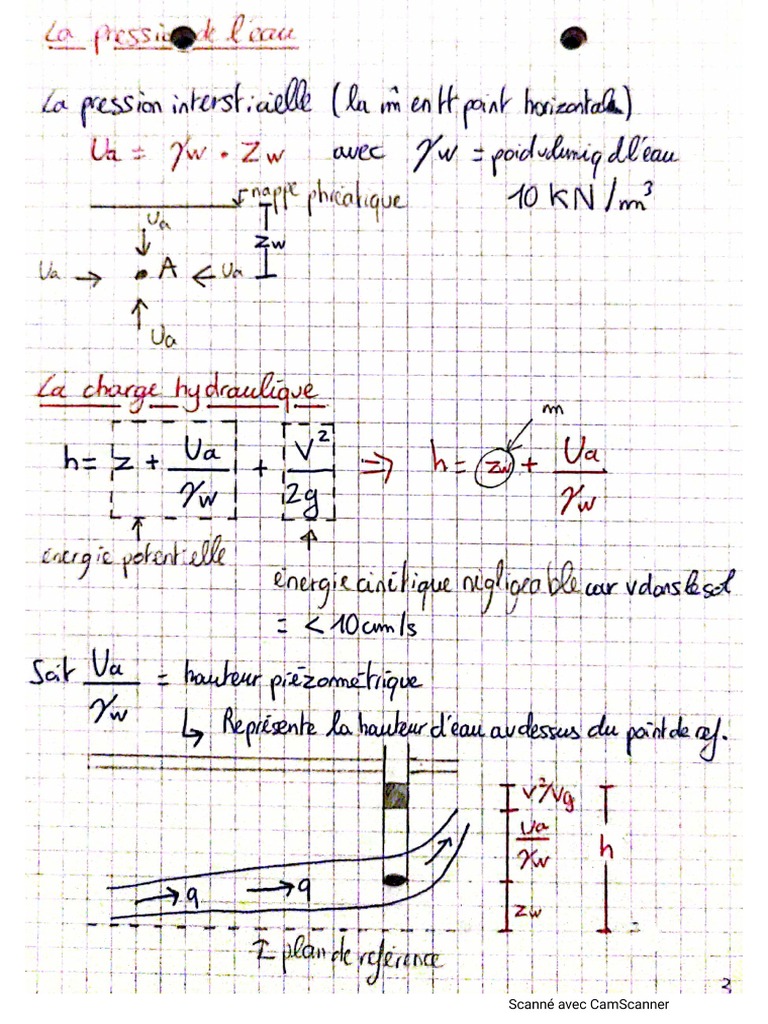 La pression de l'eau
La pression intersticielle (la m̂ en tt point horizontale)
Ua = γw · Zw avec γw = poid volumiq d l'eau
10 KN/m³
nappe phréatique
Ua
Zw
Ua → • A ← Ua
Ua
La charge hydraulique
m
h = z + Ua/γw + V²/2g ⇒ h = zw + Ua/γw
énergie potentielle
énergie cinétique négligeable car v dans le sol
= < 10 cm/s
Soit Ua/γw = hauteur piézométrique
↳ Représente la hauteur d'eau au dessus du point de ref.
V²/Vg
Ua/γw
h
→ q → q
zw
plan de reférence
3
Scanné avec CamScanner